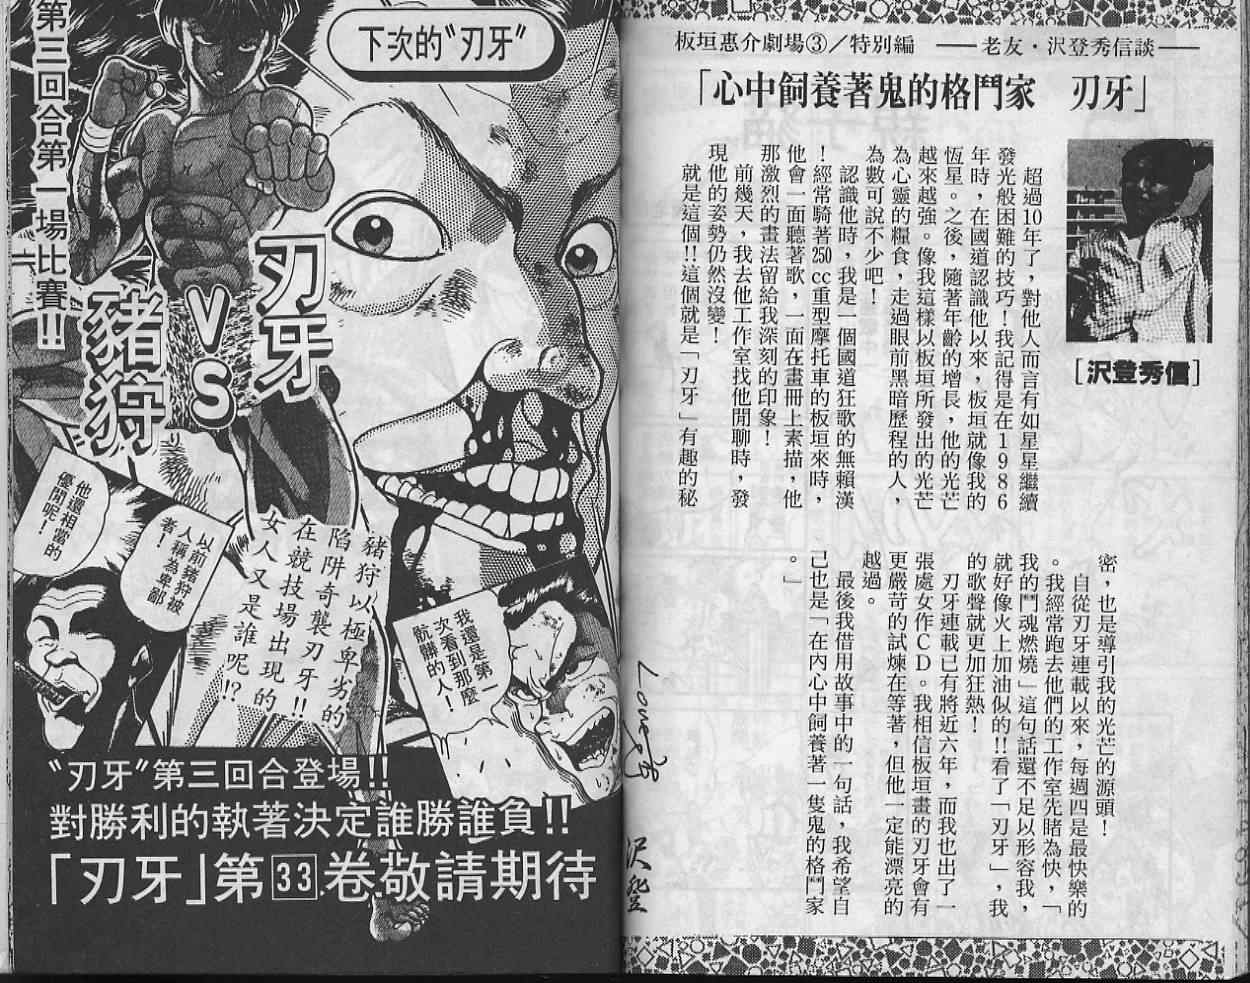 板垣惠介劇場③／特別編　——老友・沢登秀信談——
「心中飼養著鬼的格鬥家　刃牙」
［沢登秀信］
超過10年了，對他人而言有如星星繼續
發光般困難的技巧！我記得是在1986
年時，在國道認識他以來，板垣就像我的
恆星。之後，隨著年齡的增長，他的光芒
越來越強。像我這樣以板垣所發出的光芒
為心靈的糧食，走過眼前黑暗歷程的人，
為數可說不少吧！
認識他時，我是一個國道狂歌的無賴漢
！經常騎著250cc重型摩托車的板垣來時，
他會一面聽著歌，一面在畫冊上素描，他
那激烈的畫法留給我深刻的印象！
前幾天，我去他工作室找他閒聊時，發
現他的姿勢仍然沒變！
就是這個!!這個就是「刃牙」有趣的秘
密，也是導引我的光芒的源頭！
自從刃牙連載以來，每週四是最快樂的
。我經常跑去他們的工作室先睹為快，「
我的鬥魂燃燒」這句話還不足以形容我，
就好像火上加油似的!!看了「刃牙」，我
的歌聲就更加狂熱！
刃牙連載已有將近六年，而我也出了一
張處女作CD。我相信板垣畫的刃牙會有
更嚴苛的試煉在等著，但他一定能漂亮的
越過。
最後我借用故事中的一句話，我希望自
己也是「在內心中飼養著一隻鬼的格鬥家
。」
沢登
下次的〝刃牙〞
第三回合第一場比賽!!
刃牙
VS
豬狩
豬狩以極卑劣的
陷阱奇襲刃牙!!
在競技場出現的
女人又是誰呢!?
我還是第一
次看到那麼
骯髒的人！
以前豬狩被
人稱為卑鄙
者！
他還相當的
優閒呢！
〝刃牙〞第三回合登場!!
對勝利的執著決定誰勝誰負!!
「刃牙」第33卷敬請期待